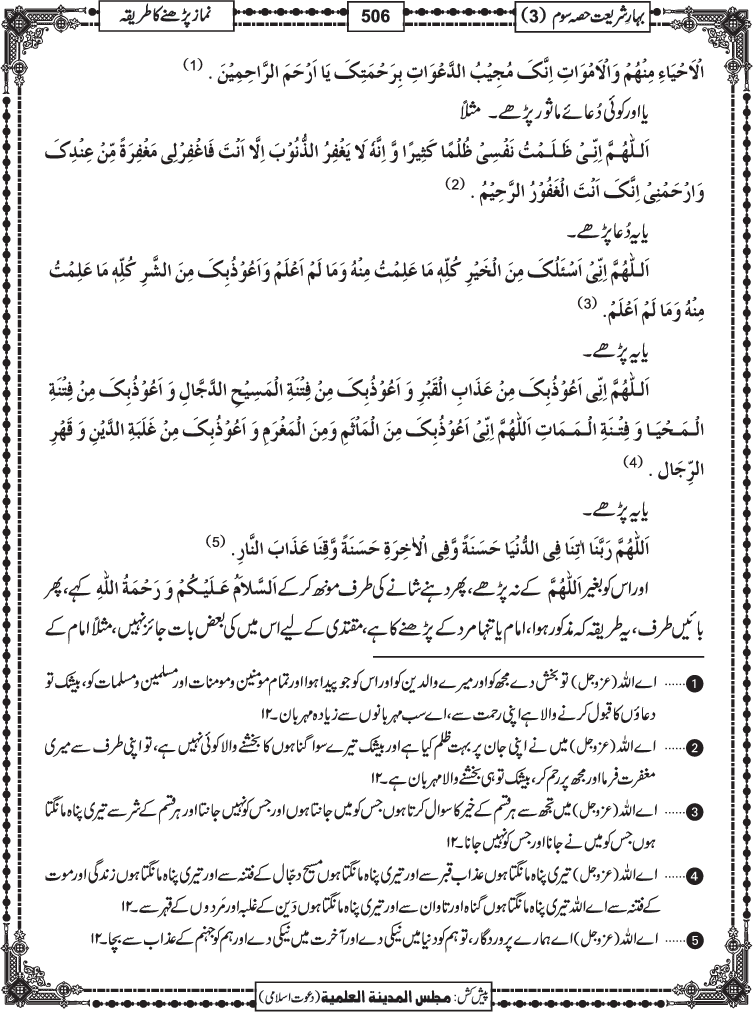 بہارِ شریعت حصہ سوم (3)
506
نماز پڑھنے کا طریقہ
الْاَحْيَاءِ مِنْهُمْ وَالْاَمْوَاتِ اِنَّكَ مُجِيْبُ الدَّعْوَاتِ بِرَحْمَتِكَ يَا اَرْحَمَ الرَّاحِمِيْنَ . (1)
یا اور کوئی دُعائے ماثور پڑھے۔ مثلاً
اَللّٰهُمَّ اِنِّيْ ظَلَمْتُ نَفْسِيْ ظُلْمًا كَثِيْرًا وَّ اِنَّهٗ لَا يَغْفِرُ الذُّنُوْبَ اِلَّا اَنْتَ فَاغْفِرْلِي مَغْفِرَةً مِّنْ عِنْدِكَ
وَارْحَمْنِيْ اِنَّكَ اَنْتَ الْغَفُوْرُ الرَّحِيْمُ . (2)
یا یہ دُعا پڑھے۔
اَللّٰهُمَّ اِنِّيْ اَسْئَلُكَ مِنَ الْخَيْرِ كُلِّهٖ مَا عَلِمْتُ مِنْهُ وَمَا لَمْ اَعْلَمْ وَاَعُوْذُبِكَ مِنَ الشَّرِ كُلِّهٖ مَا عَلِمْتُ
مِنْهُ وَمَا لَمْ اَعْلَمْ. (3)
یا یہ پڑھے۔
اَللّٰهُمَّ اِنِّي اَعُوْذُبِكَ مِنْ عَذَابِ الْقَبْرِ وَ اَعُوْذُبِكَ مِنْ فِتْنَةِ الْمَسِيْحِ الدَّجَّالِ وَ اَعُوْذُبِكَ مِنْ فِتْنَةِ
الْمَحْيَا وَ فِتْنَةِ الْمَمَاتِ اَللّٰهُمَّ اِنِّيْ اَعُوْذُبِكَ مِنَ الْمَأْثَمِ وَمِنَ الْمَغْرَمِ وَ اَعُوْذُبِكَ مِنْ غَلَبَةِ الدَّيْنِ وَ قَهْرِ
الرِّجَالِ . (4)
یا یہ پڑھے۔
اَللّٰهُمَّ رَبَّنَا اٰتِنَا فِي الدُّنْيَا حَسَنَةً وَّفِي الْاٰخِرَةِ حَسَنَةً وَّقِنَا عَذَابَ النَّارِ. (5)
اور اس کو بغیر اَللّٰهُمَّ کے نہ پڑھے، پھر دہنے شانے کی طرف مونھ کر کے اَلسَّلَامُ عَلَيْكُمْ وَ رَحْمَةُ اللهِ کہے، پھر
بائیں طرف، یہ طریقہ کہ مذکور ہوا، امام یا تنہا مرد کے پڑھنے کا ہے، مقتدی کے لیے اس میں کی بعض بات جائز نہیں، مثلاً امام کے
1 ...... اے اللہ (عزوجل) تو بخش دے مجھ کو اور میرے والدین کو اور اس کو جو پیدا ہوا اور تمام مومنین و مومنات اور مسلمین و مسلمات کو، بیشک تو
دعاؤں کا قبول کرنے والا ہے اپنی رحمت سے، اے سب مہربانوں سے زیادہ مہربان۔ ۱۲
2 ...... اے اللہ (عزوجل) میں نے اپنی جان پر بہت ظلم کیا ہے اور بیشک تیرے سوا گناہوں کا بخشنے والا کوئی نہیں ہے، تو اپنی طرف سے میری
مغفرت فرما اور مجھ پر رحم کر، بیشک تو ہی بخشنے والا مہربان ہے۔ ۱۲
3 ...... اے اللہ (عزوجل) میں تجھ سے ہر قسم کے خیر کا سوال کرتا ہوں جس کو میں جانتا ہوں اور جس کو نہیں جانتا اور ہر قسم کے شر سے تیری پناہ مانگتا
ہوں جس کو میں نے جانا اور جس کو نہیں جانا۔ ۱۲
4 ...... اے اللہ (عزوجل) تیری پناہ مانگتا ہوں عذاب قبر سے اور تیری پناہ مانگتا ہوں مسیح دجّال کے فتنہ سے اور تیری پناہ مانگتا ہوں زندگی اور موت
کے فتنہ سے اے اللہ تیری پناہ مانگتا ہوں گناہ اور تاوان سے اور تیری پناہ مانگتا ہوں دَین کے غلبہ اور مَردوں کے قہر سے۔ ۱۲
5 ...... اے اللہ (عزوجل) اے ہمارے پروردگار، تو ہم کو دنیا میں نیکی دے اور آخرت میں نیکی دے اور ہم کو جہنم کے عذاب سے بچا۔ ۱۲
پیش کش: مجلس المدينة العلمية (دعوت اسلامی)